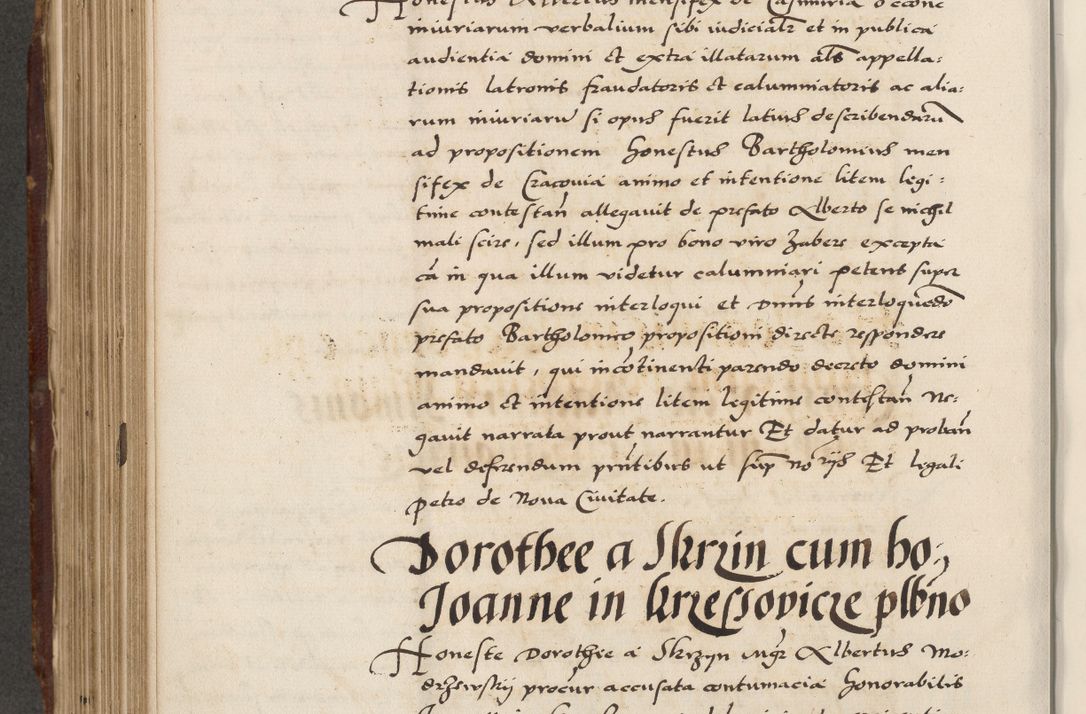 Honestus Albertus mensifex de Casmiria occone
iniuriarum verbalium sibi iudicialr et in publica
audientia domini et extra illatarum als appella:
tionis latronis fraudatoris et calumniatoris ac alia:
rum iniuriarū si opus fuerit latius describendarū
ad propositionem honestus Bartholomeus men
sifex de Cracovia animo et intentione litem legi:
time contestan̄ allegavit de prefato Alberto se nichil
mali scire, sed illum pro bono viro habere excepta
cā in qua illum videtur calumniari petens super
sua propositione interloqui et Dnus interloquēdo
prefato Bartholomeo propositioni directe respondere
mandavit, qui incōtinenti parendo decreto domini
animo et intentione litem legitime contestan̄ Ne:
gavit narrata prout narrantur Et datur ad proban̄
vel deferendum prn̄tibus ut sup̄ no rijs Et legali
petro de Nova Civitate.
Dorothee a Skrzin cum ho:
Joanne in krzessovicze plb̄no
Honeste Dorothee a Skrzyn Albertus Mo:
drzewskij procur̄ accusata contumacia honorabilis